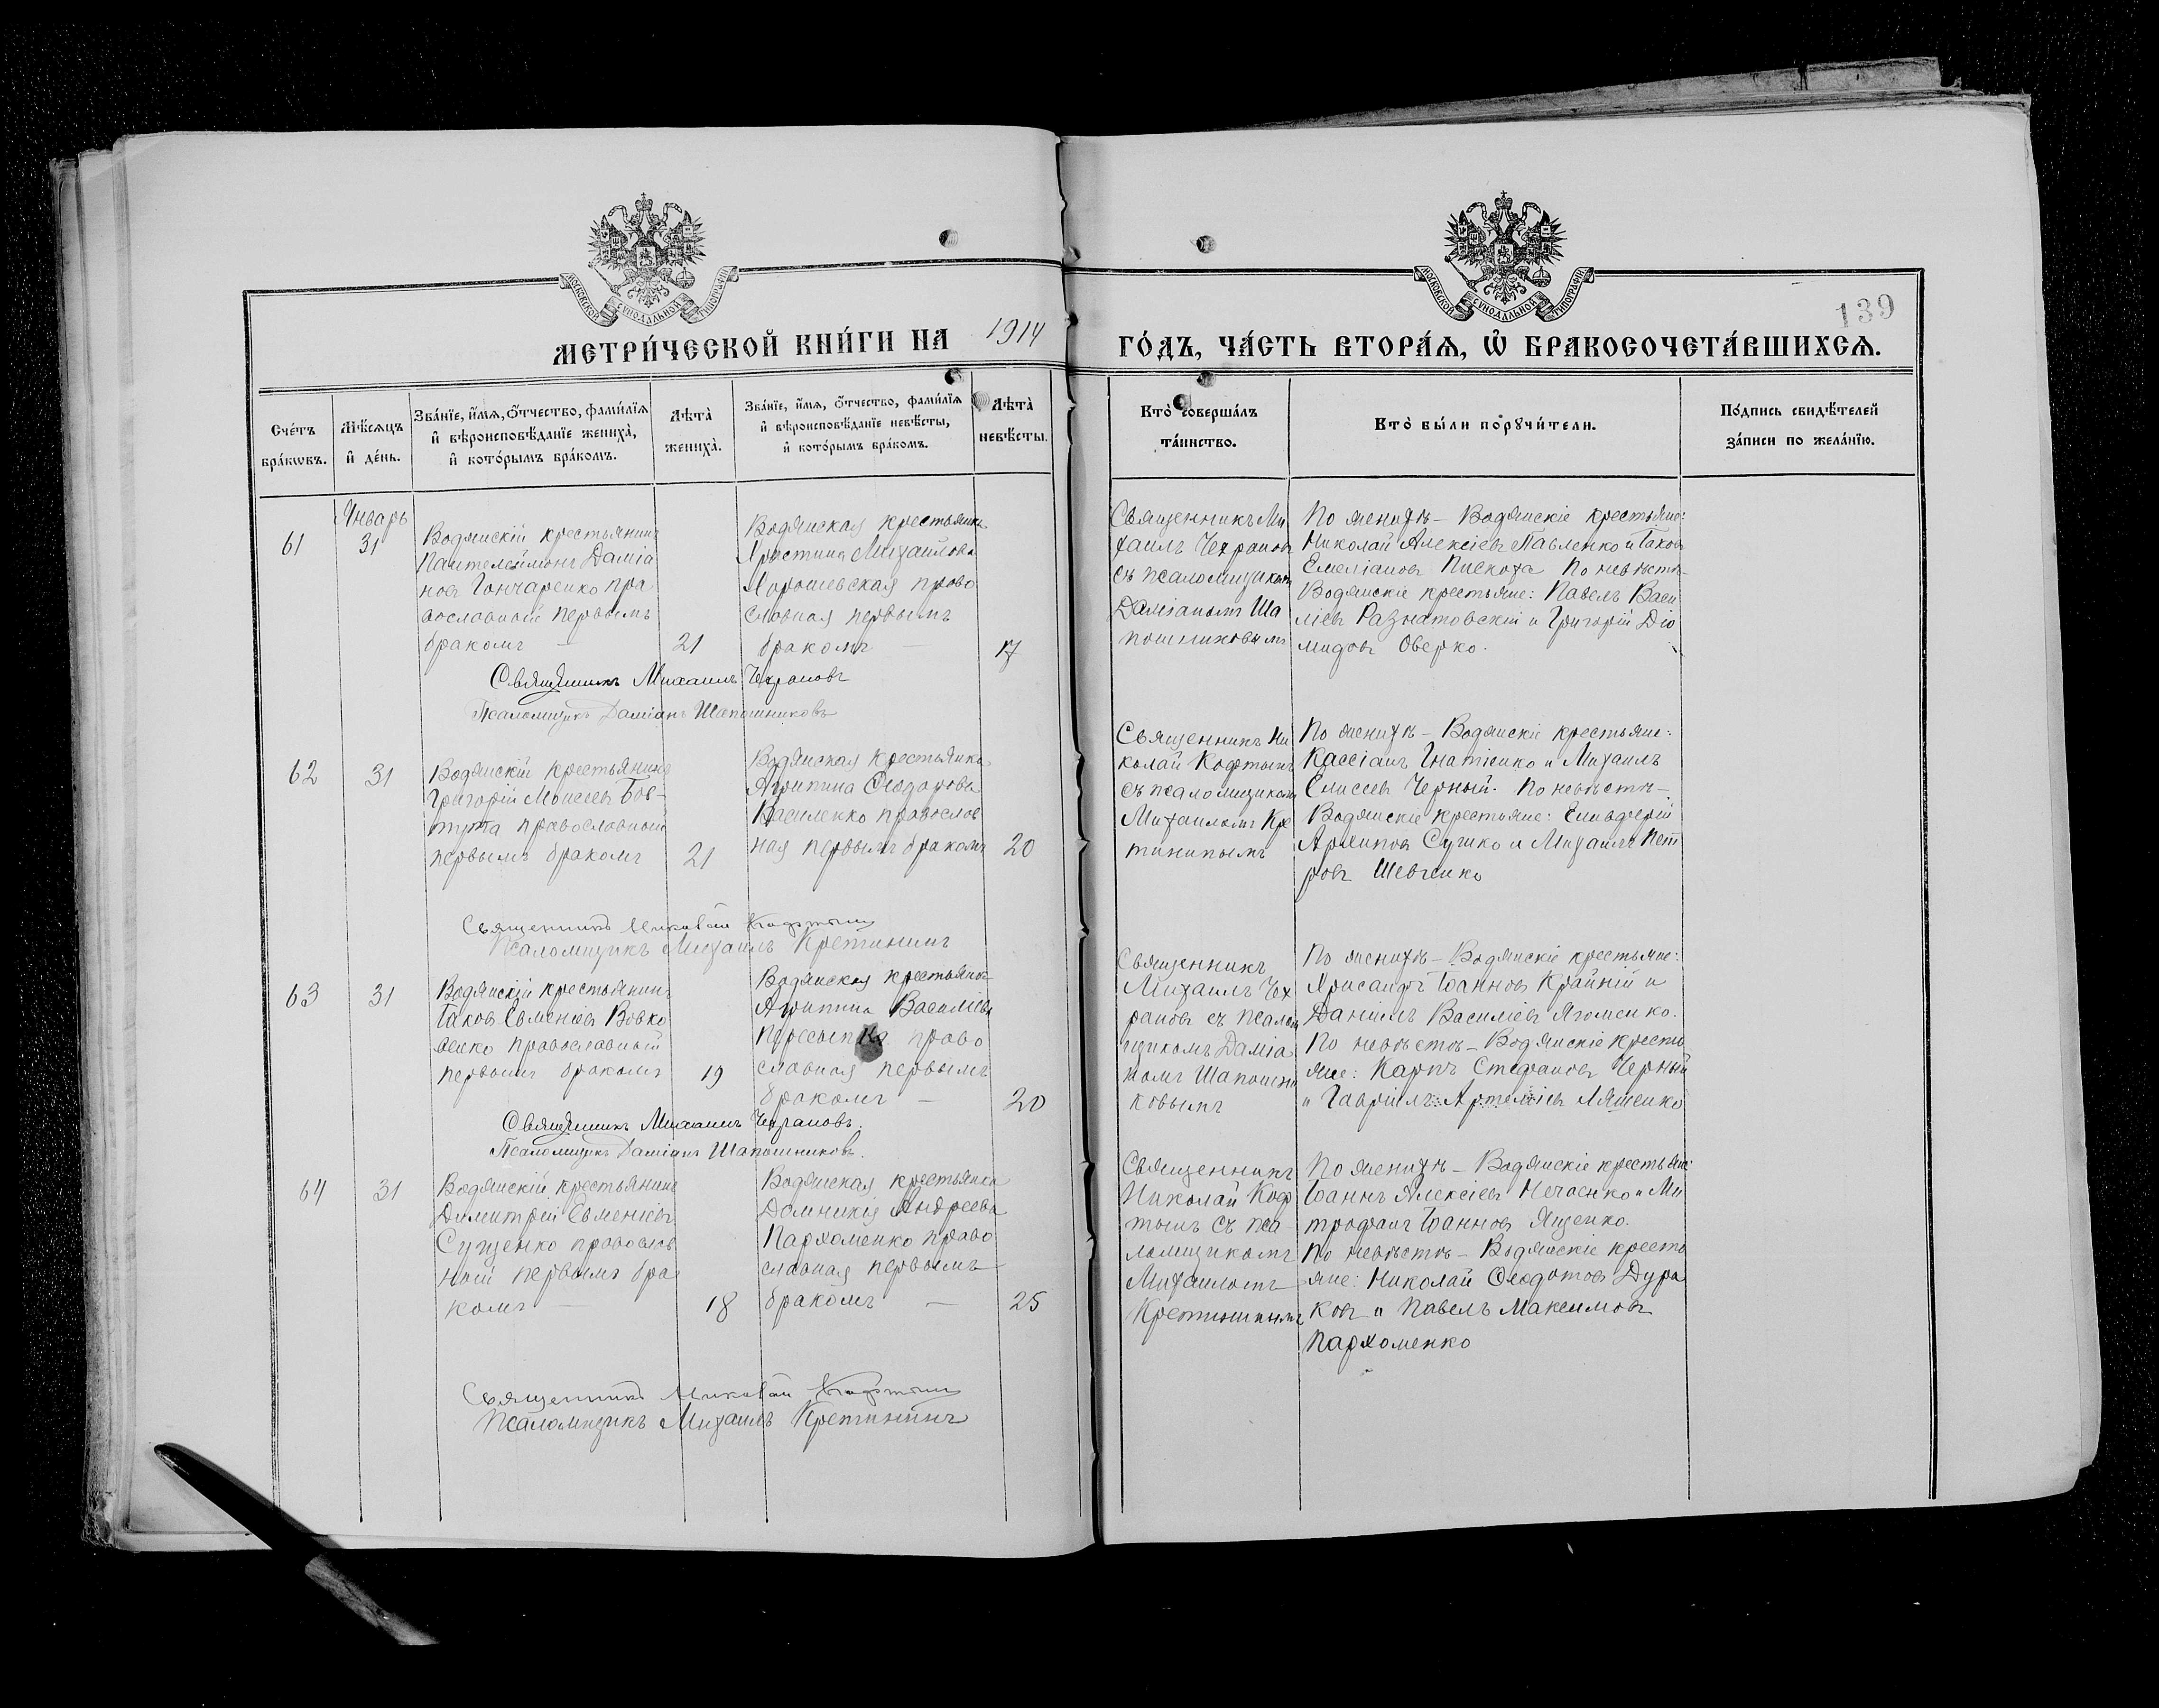 МОСКОВСКОЙ СѴНОДАЛЬНОЙ ТИПОГРАФІИ
МОСКОВСКОЙ СѴНОДАЛЬНОЙ ТИПОГРАФІИ
139
МЕТРИ́ЧЕСКОЙ КНИ́ГИ НА 1914 ГО́ДЪ, ЧА́СТЬ ВТОРА́Ѧ, Ѡ БРАКОСОЧЕТА́ВШИХСѦ.
Сче́тъ
бра́кѡвъ.
Мѣ́сѧцъ
и҆ де́нь.
Зва́нїе, и҆́мѧ, ѻ҆́тчество, фами́лїѧ
и҆ вѣроисповѣ́данїе жениха̀,
и҆ кото́рымъ бра́комъ.
Лѣта̀
жениха̀.
Зва́нїе, и҆́мѧ, ѻ҆́тчество, фами́лїѧ
и҆ вѣроисповѣ́данїе невѣ́сты,
и҆ кото́рымъ бра́комъ.
Лѣта̀
невѣ́сты.
Кто̀ соверша́лъ
та́инство.
Кто̀ бы́ли порꙋчи́тели.
По́дпись свидѣ́телей
за́писи по жела́нїю.
61
Январь
31
Водянскій крестьянинъ
Пантелеймонъ Даміа
новъ Гончаренко пра
вославный первымъ
бракомъ —
21
Водянская крестьянка
Христина Михайлова
Хорошевская право
славная первымъ
бракомъ —
17
Священникъ Ми
хаилъ Чехрановъ
съ псаломщикомъ
Даміаномъ Ша
пошниковымъ
По женихѣ — Водянскіе крестьяне:
Николай Алексіевъ Павленко и Іаковъ
Емеліановъ Пискоха По невѣстѣ —
Водянскіе крестьяне: Павелъ Васи
ліевъ Разнатовскій и Григорій Діо
мидовъ Оверко.
Священникъ Михаилъ Чехрановъ
Псаломщикъ Даміанъ Шапошниковъ
62
31
Водянскій крестьянинъ
Григорій Моисеевъ Бов-
тута православный
первымъ бракомъ
21
Водянская крестьянка
Агрипина Ѳеодорова
Василенко православ
ная первымъ бракомъ
20
Священникъ Ни
колай Кафтынъ
съ псаломщикомъ
Михаиломъ Кре
тининымъ
По женихѣ — Водянскіе крестьяне:
Кассіанъ Гнатіенко и Михаилъ
Елисеевъ Черный. По невѣстѣ —
Водянскіе крестьяне: Елевферій
Архиповъ Сушко и Михаилъ Пет
ровъ Шевченко
Священникъ Николай Кафтынъ
Псаломщикъ Михаилъ Кретининъ
63
31
Водянскій крестьянинъ
Іаковъ Евменіевъ Вовко
женко православный
первымъ бракомъ
19
Водянская крестьянка
Агрипина Василіева
Пересыпка право
славная первымъ
бракомъ —
20
Священникъ
Михаилъ Чех
рановъ съ псалом
щикомъ Даміа
номъ Шапошни
ковымъ
По женихѣ — Водянскіе крестьяне:
Хрисанфъ Іоанновъ Крайній и
Даніилъ Василіевъ Хоменко.
По невѣстѣ — Водянскіе кресть
яне: Карпъ Стефановъ Черный
и Гавріилъ Артеміевъ Ляшенко
Священникъ Михаилъ Чехрановъ.
Псаломщикъ Даміанъ Шапошниковъ.
64
31
Водянскій крестьянинъ
Димитрій Евменіевъ
Сущенко православ
ный первымъ бра
комъ —
18
Водянская крестьянка
Домникія Андреева
Пархоменко право
славная первымъ
бракомъ —
25
Священникъ
Николай Каф
тынъ съ пса
ломщикомъ
Михаиломъ
Кретининымъ
По женихѣ — Водянскіе крестьяне:
Іоаннъ Алексіевъ Нечаенко и Ми
трофанъ Іоанновъ Ященко.
По невѣстѣ — Водянскіе кресть
яне: Николай Ѳеодотовъ Дура
ковъ и Павелъ Максимовъ
Пархоменко
Священникъ Николай Кафтынъ
Псаломщикъ Михаилъ Кретининъ